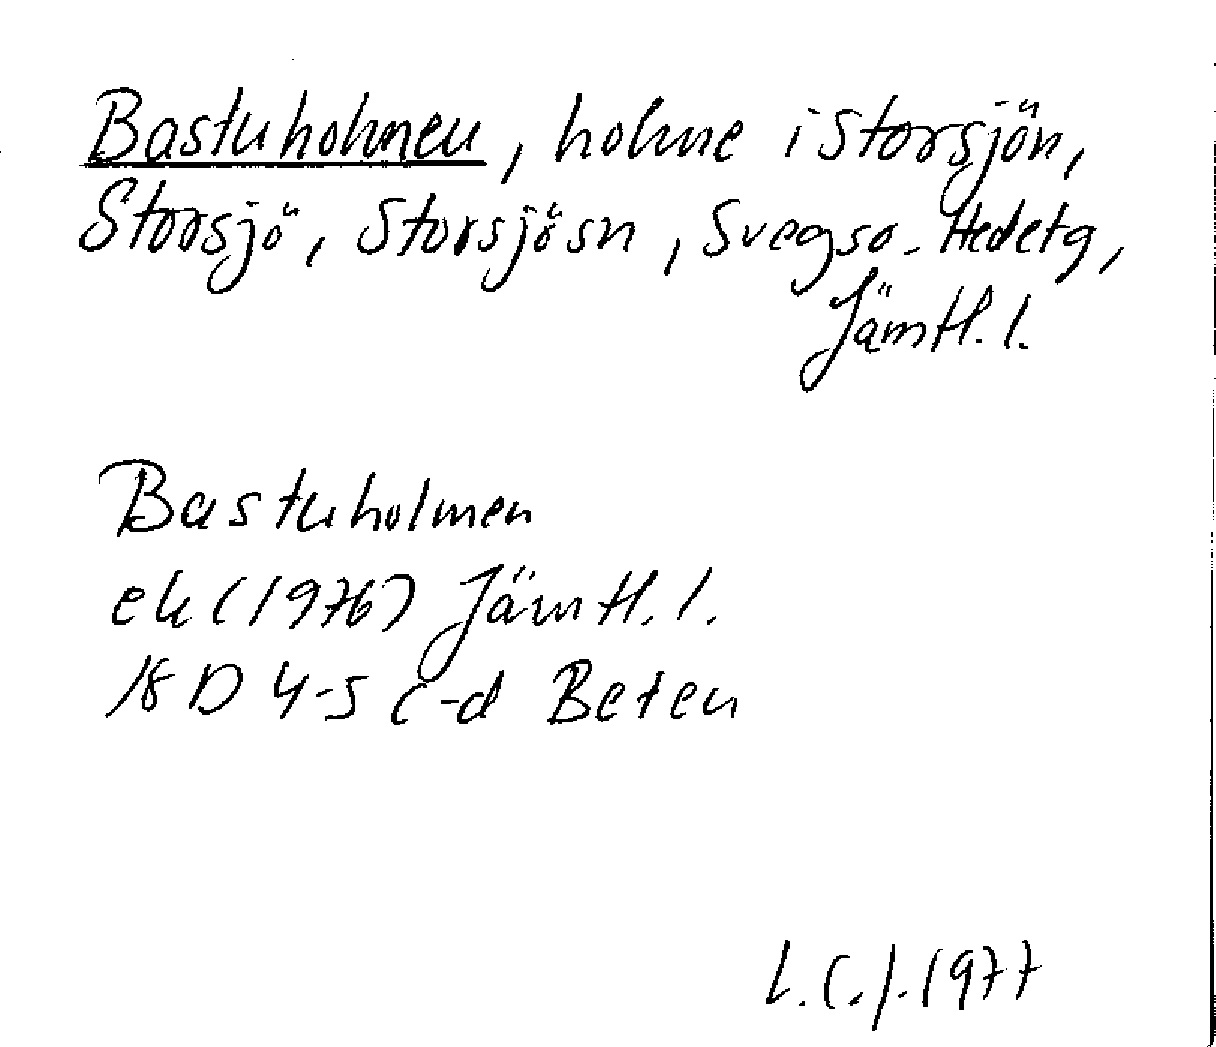 Bastuholmen, holme i Storsjön,
Storsjö, Storsjösn, Svegso. Hedetg,
Jämtl. l.
Bastuholmen
ek (1976) Jämtl. l.
18 D 4-5 c-d Beten
L.C.J. 1977